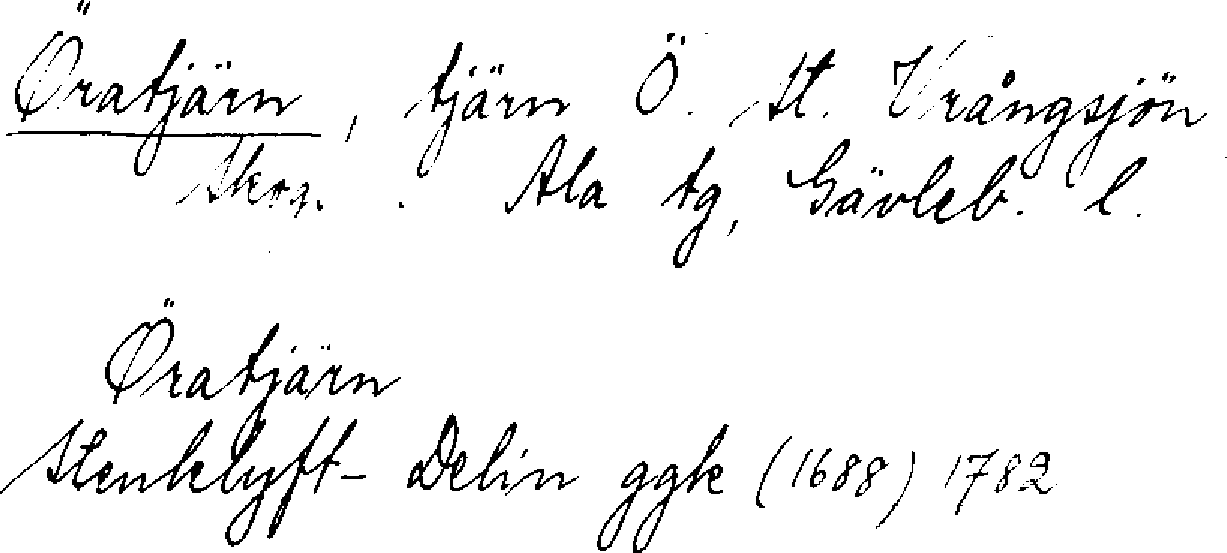 Öratjärn, tjärn Ö. St. Vrångsjön
Skog. Ala tg, Gävleb. l.
Öratjärn
Stenklyft- Delin ggk (1688) 1782